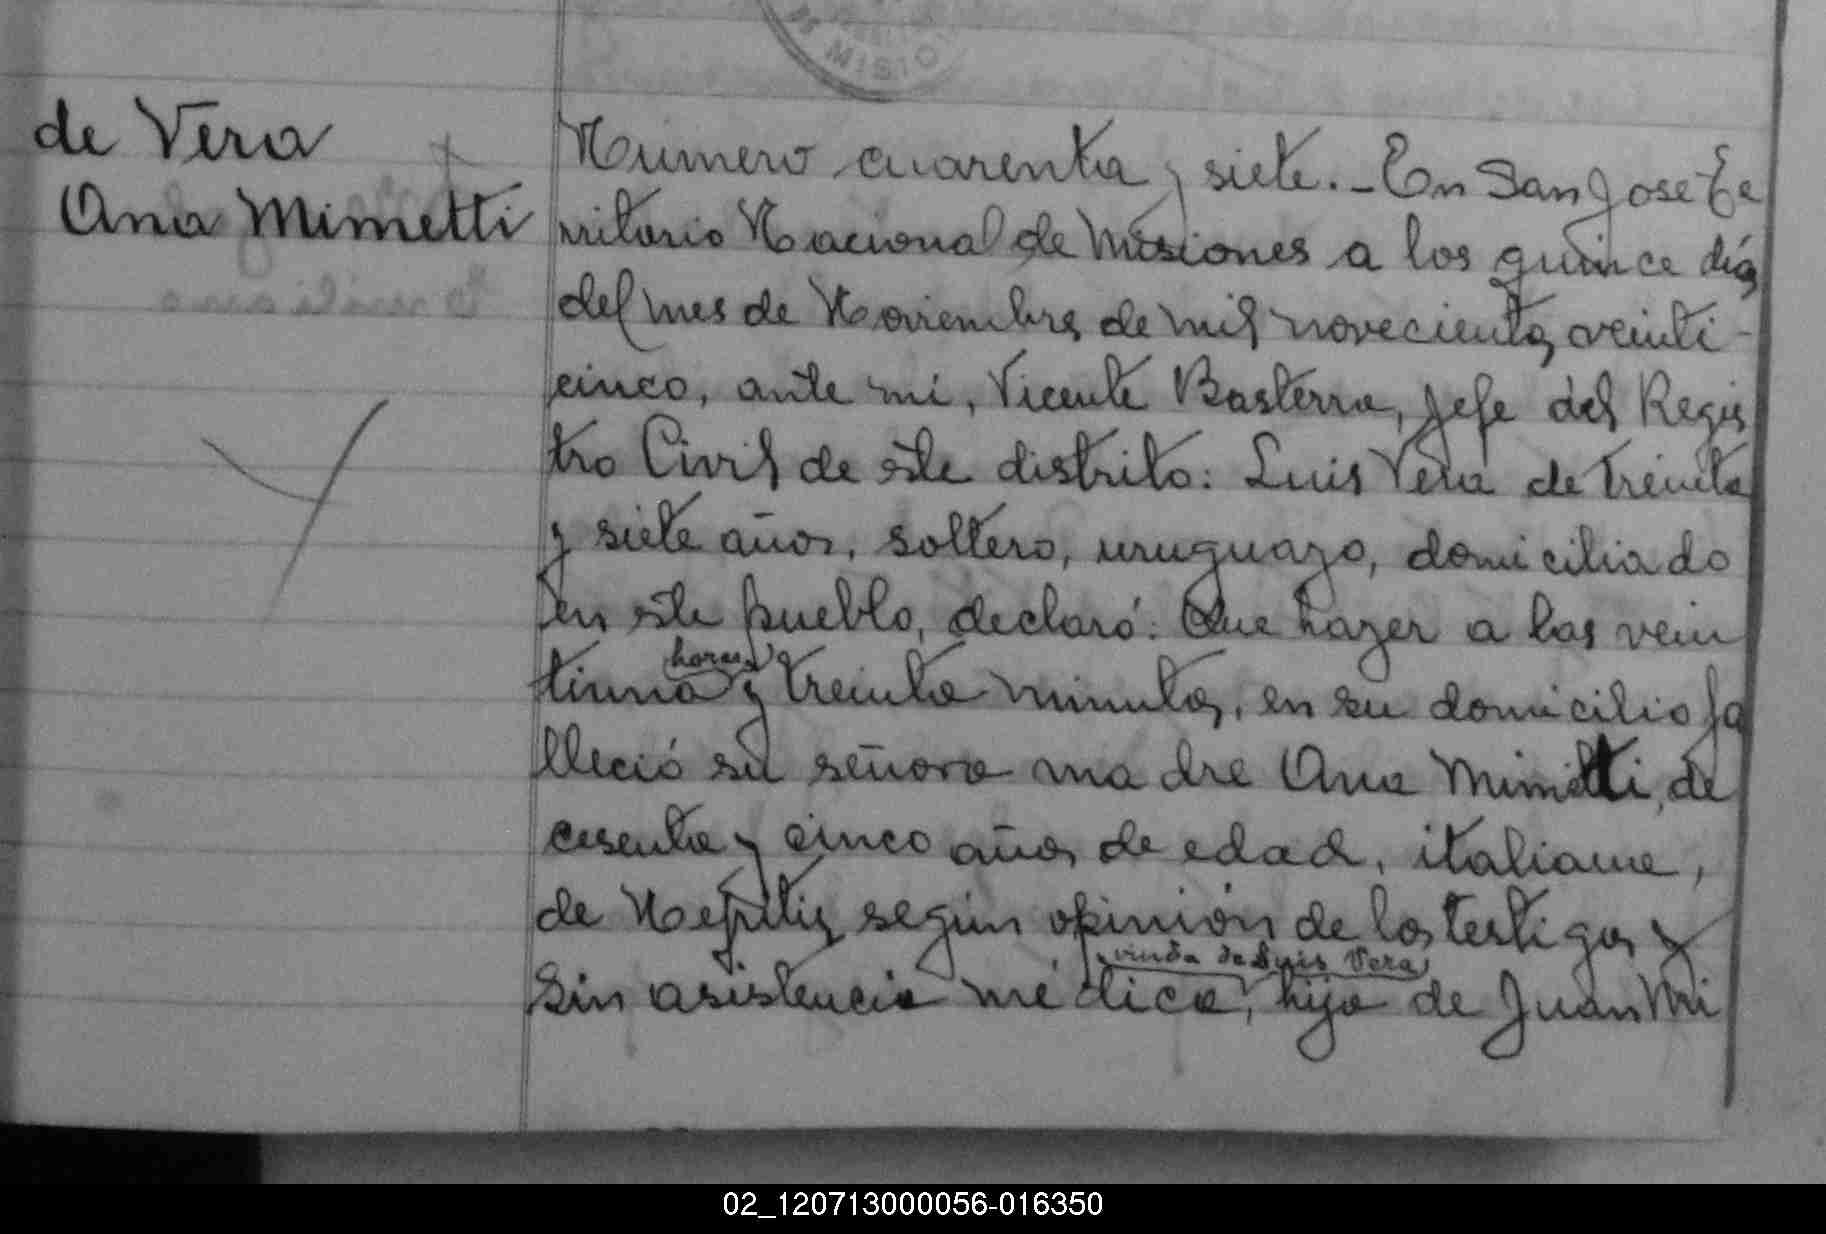 MISIO
de Vera
Ana Mimetti
Número cuarenta y siete.- En San José Te
rritorio Nacional de Misiones a los quince días
del mes de Noviembre de mil novecientos veinti-
cinco, ante mi, Vicente Basterra, Jefe del Regis
tro Civil de este distrito: Luis Vera de treinta
y siete años, soltero, uruguayo, domiciliado
en este pueblo, declaró: Que hayer a las vein
horas
tiuna y treinta minutos, en su domicilio fa
lleció su señora madre Ana Mimetti, de
cesenta y cinco años de edad, italiana,
de Nefritis según opinión de los testigos y
viuda de Luis Vera
sin asistencia médica, hija de Juan Mi
02_120713000056-016350